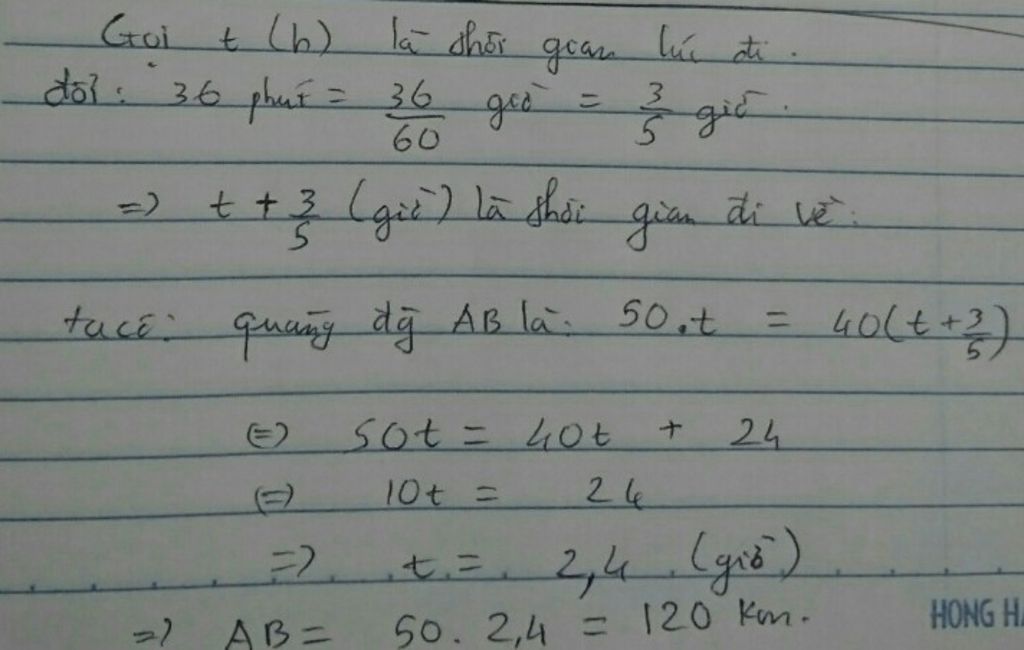 Gọi t (h) là thời gian lúc đi.
đổi: 36 phút = 36/60 giờ = 3/5 giờ.
=> t + 3/5 (giờ) là thời gian đi về.
ta có: quãng đg AB là: 50.t = 40(t + 3/5)
(=) 50t = 40t + 24
(=) 10t = 24
=> t = 2,4 (giờ)
=> AB = 50. 2,4 = 120 km.
HONG HA